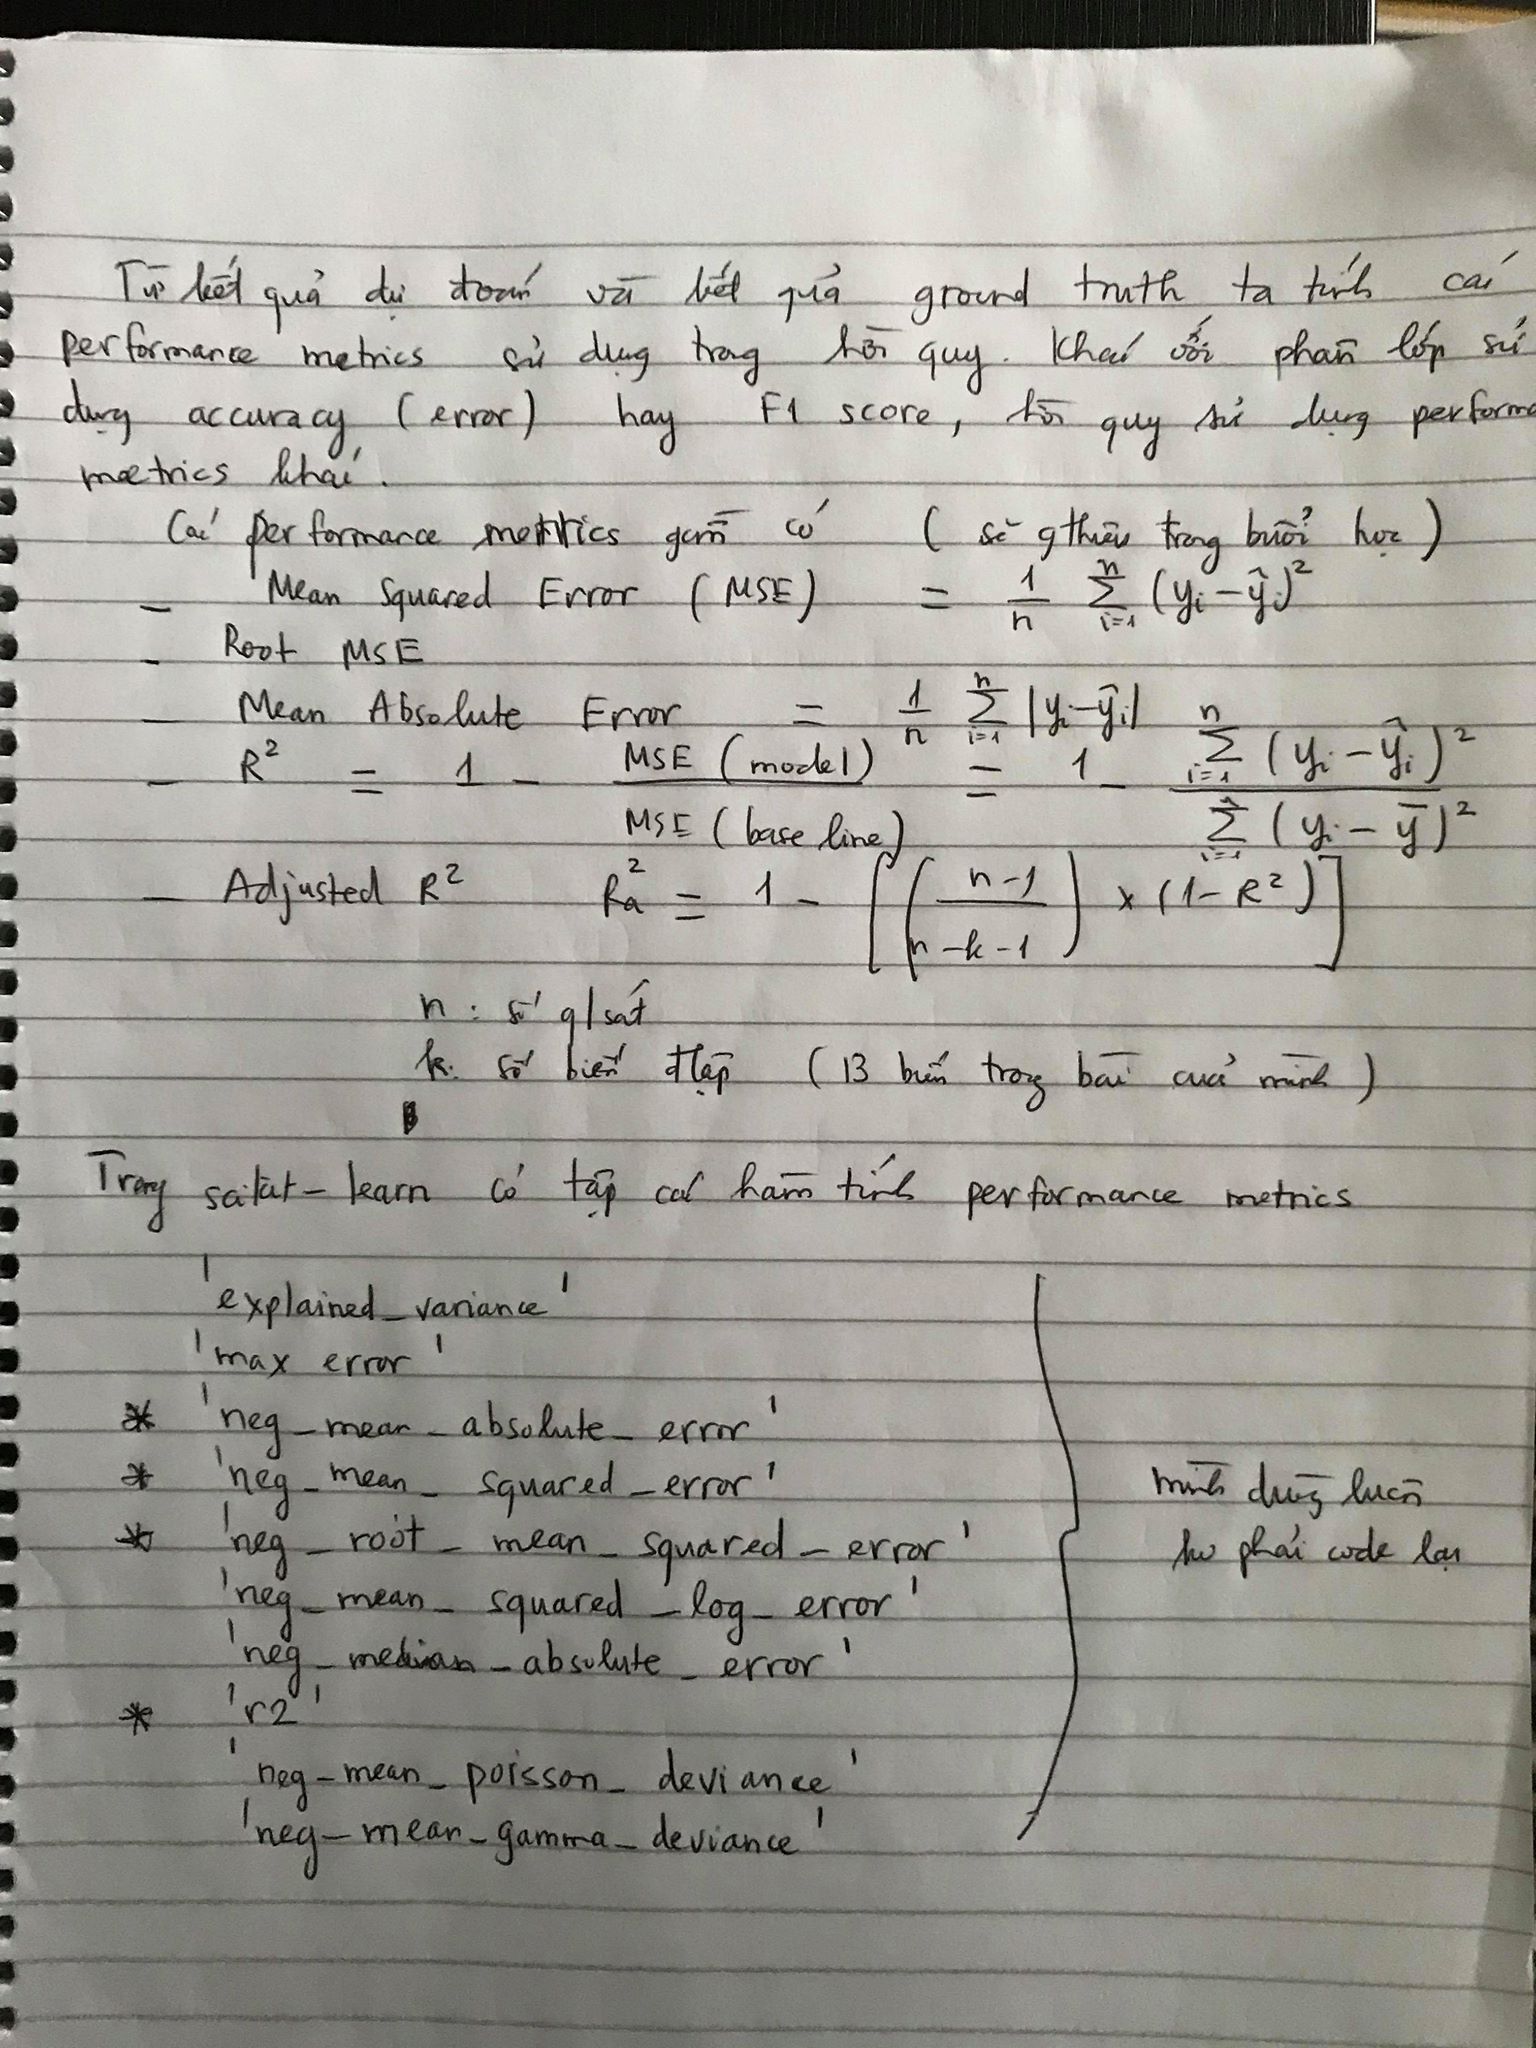 Từ kết quả dự đoán và kết quả ground truth ta tính các
performance metrics sử dụng trong hồi quy. Khác với phân lớp sử
dụng accuracy (error) hay F1 score, hồi quy sử dụng performa
metrics khác.
Các performance metrics gồm có (sẽ gthiệu trong buổi học)
- Mean Squared Error (MSE) = 1/n Σ_{i=1}^{n} (yi - ŷi)²
- Root MSE
- Mean Absolute Error = 1/n Σ_{i=1}^{n} |yi - ŷi|
- R² = 1 - MSE (model) / MSE (base line) = 1 - Σ_{i=1}^{n} (yi - ŷi)² / Σ_{i=1}^{n} (yi - ȳ)²
- Adjusted R² Ra² = 1 - [((n-1)/(n-k-1)) × (1-R²)]
n: số q/sát
k: số biến đlập (13 biến trong bài của mình)
Trong scikit-learn có tập các hàm tính performance metrics
'explained_variance'
'max error'
* 'neg_mean_absolute_error'
* 'neg_mean_squared_error'
* 'neg_root_mean_squared_error'
'neg_mean_squared_log_error'
'neg_median_absolute_error'
* 'r2'
'neg_mean_poisson_deviance'
'neg_mean_gamma_deviance'
mình dùng luôn
ko phải code lại